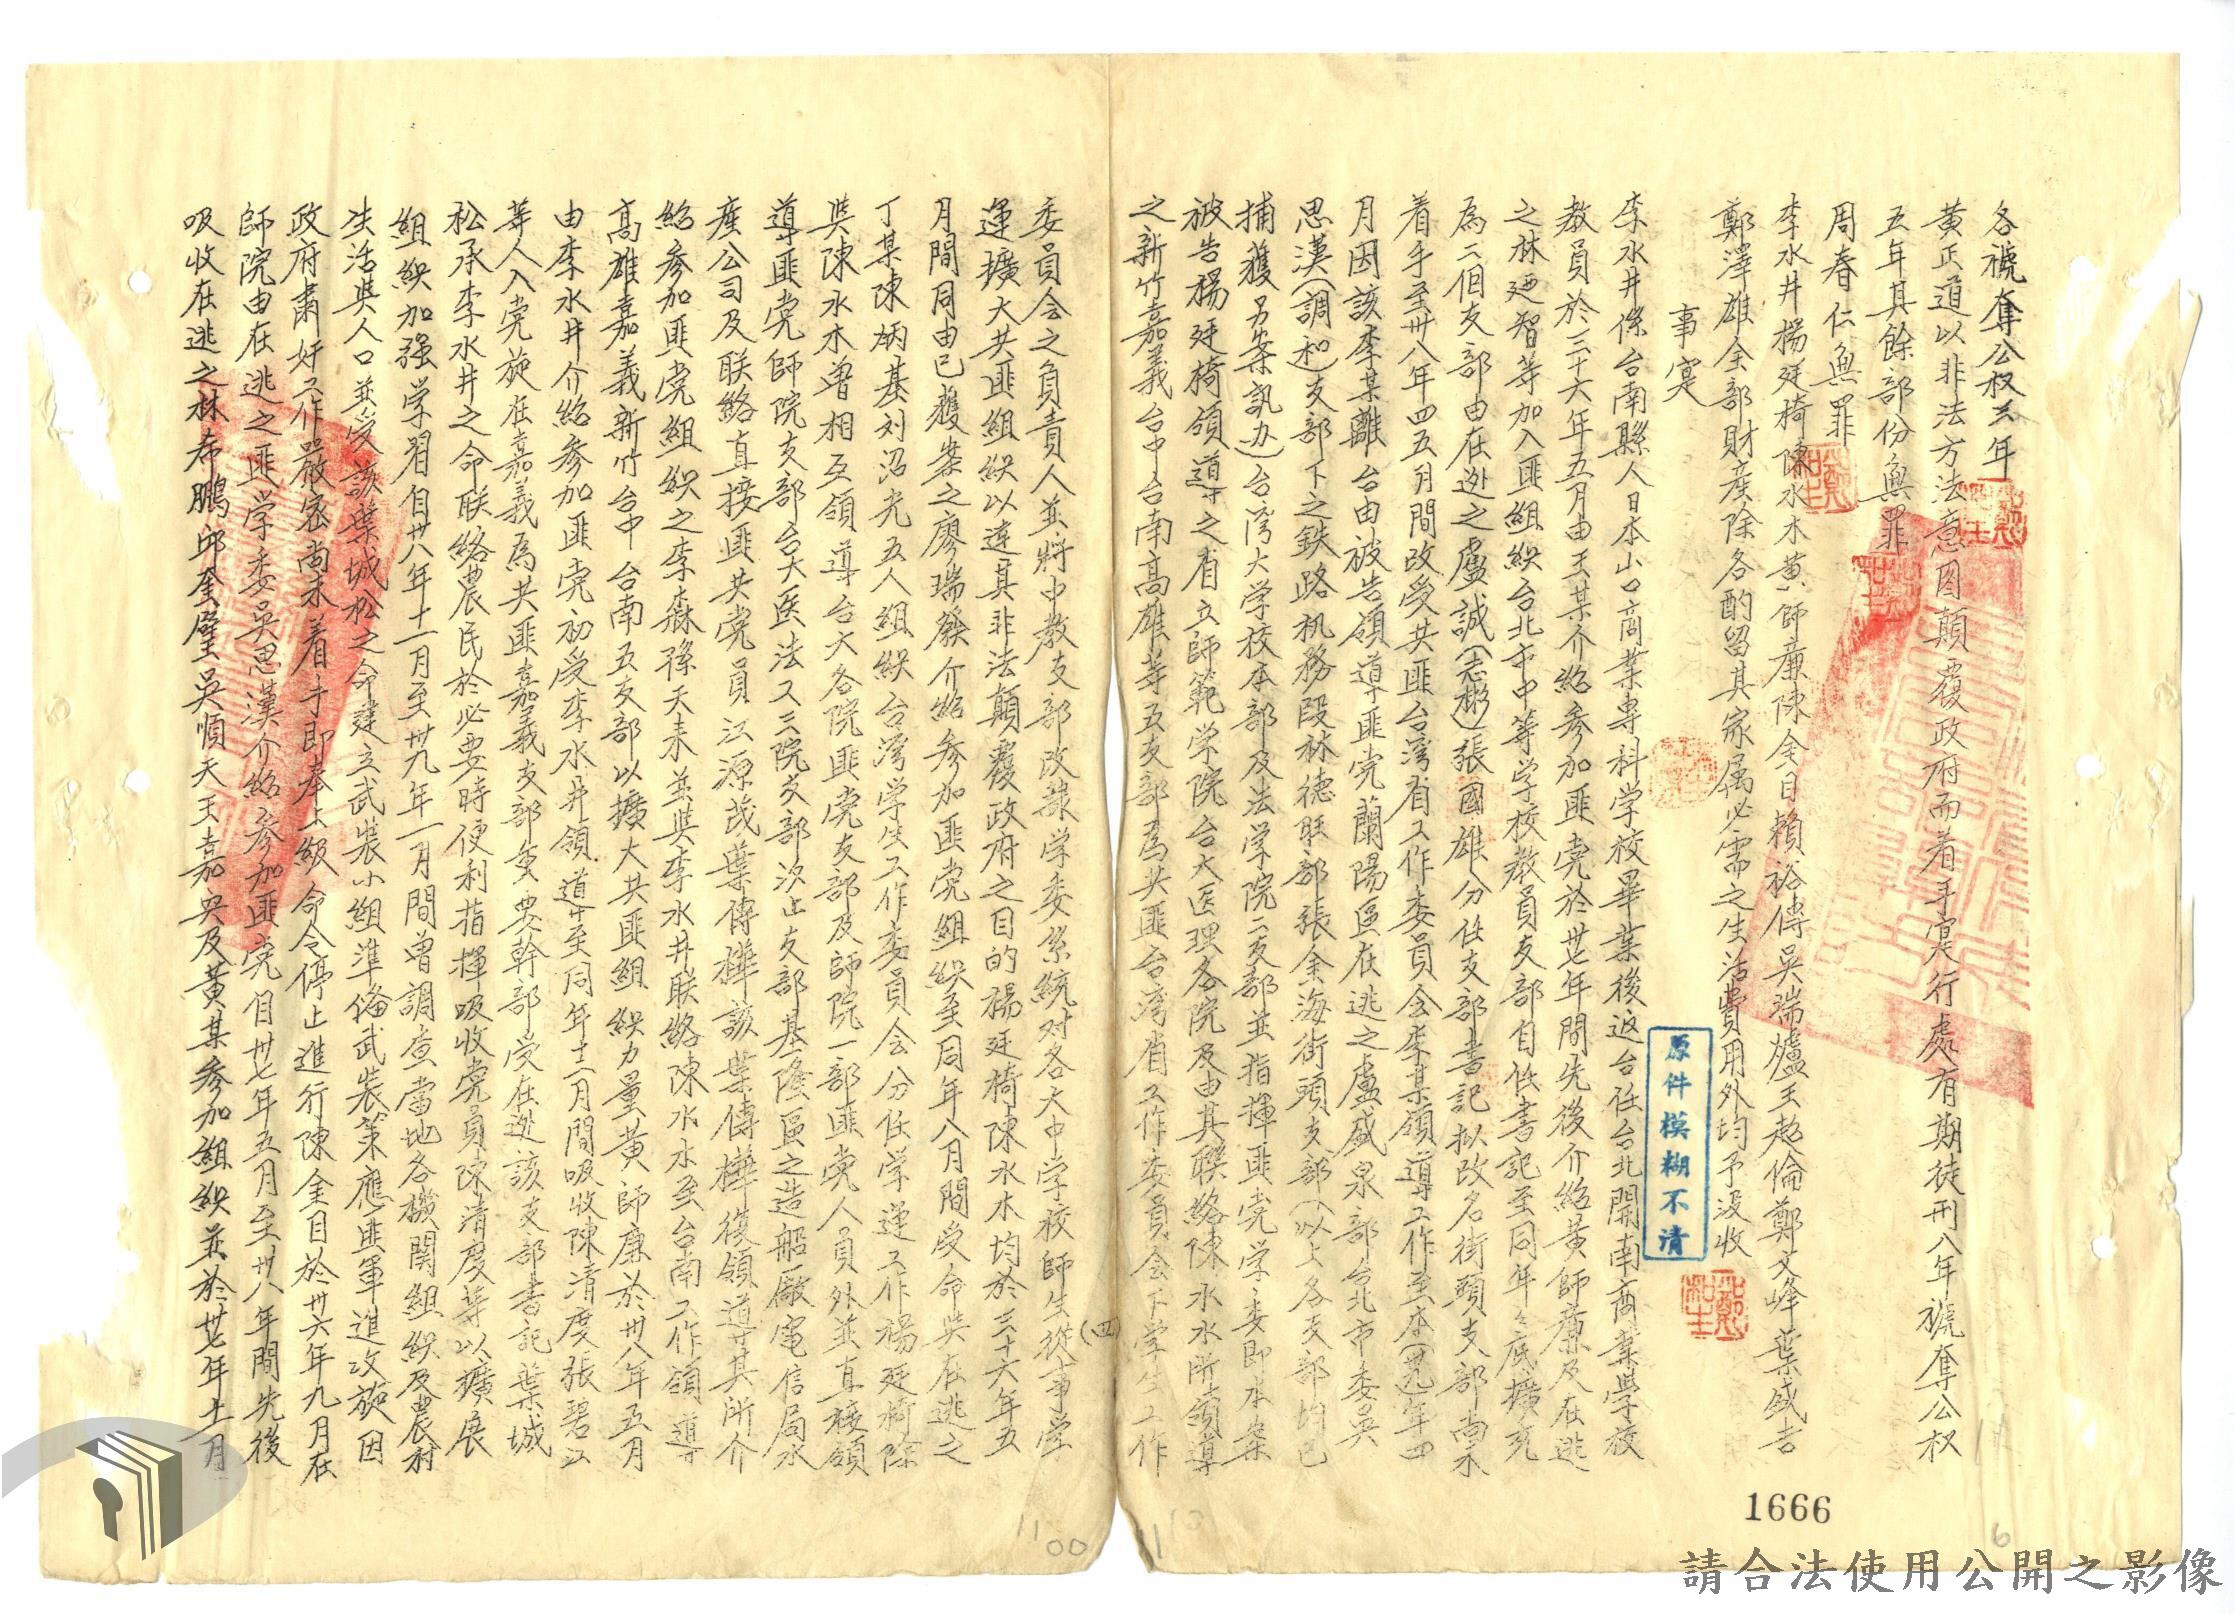 各褫奪公权三年
黃正道以非法方法意图顛覆政府而着手实行處有期徒刑八年褫奪公权
五年其餘部份無罪
周春仁無罪
李水井楊廷椅陳水木黄師廉陳金目賴裕傳吳瑞爐王超倫鄭文峰葉盛吉
鄭澤雄全部財產除各酌留其家属必需之生活費用外均予没收
事实
李水井係台南縣人日本山口高業專科学校畢業後返台任台北開南商業學校
教員於三十六年五月由王某介紹参加匪党於卅七年間先後介紹黃師廉及在逃
之林廼智等加入匪組織台北市中等学校教員支部自任書記至同年々底擴充
為二個支部由在逃之盧誠(志彬)張國雄分任支部書記拟改名街頭支部尚未
着手至卅八年四五月間改受共匪台湾省工作委員会李某領導工作至本(卅九)年四
月因該李某離台由被告領導匪党蘭陽區在逃之盧盛泉部台北市委吳
思漢(調和)支部下之鉄路机務段林德旺部張金海街頭支部(以上各支部均已
捕獲另案訊办)台湾大学校本部及法学院二支部並指揮匪党学委即本案
被告楊廷椅領導之省立師範学院台大医理各院及由其聯絡陳水木所領導
之新竹嘉義台中台南高雄等五支部為共匪台湾省工作委員会下学生工作
(四)
委員会之負責人並將中教支部改隸学委系統对各大中学校師生從事学
運擴大共匪組織以達其非法顛覆政府之目的楊廷椅陳水木均於三十六年五
月間同由已獲案之廖瑞發介紹参加匪党組織至同年八月間受命与在逃之
丁某陳炳基刘沼光五人組織台湾学生工作委員会分任学運工作楊廷椅除
与陳水木曾相互領導台大各院匪党支部及師院一部匪党人員外並直接領
導匪党師院支部台大医法又三院支部汐止支部基隆區之造船廠電信局水
產公司及联絡直接匪共党員江源茂葉傳樺該葉傳樺後領導其所介
紹参加匪党組織之李森孫天来並与李水井联絡陳水木至台南工作領導
高雄嘉義新竹台中台南五支部以擴大共匪組織力量黃師廉於卅八年五月
由李水井介紹参加匪党初受李水井領道至同年十二月間吸收陳清度張碧江
等人入党旋在嘉義為共匪嘉義支部重要幹部受在逃該支部書記葉城
松承李水井之命联絡農民於必要時便利指揮吸收党員陳清度等以擴展
組織加强学習自卅八年十一月至卅九年一月間曾調查當地各機関組織及農村
生活与人口並受該葉城松之命建立武裝小組準备武裝策應匪軍進攻旋因
政府肅奸工作嚴密尚未着手即奉上級命令停止進行陳金目於卅六年九月在
師院由在逃之匪学委吳思漢介紹参加匪党自卅七年五月至卅八年間先後
吸收在逃之林希鵬邱奎壁吳順天王嘉央及黃某参加組織並於卅七年十一月
原件模糊不清
1666
請合法使用公開之影像